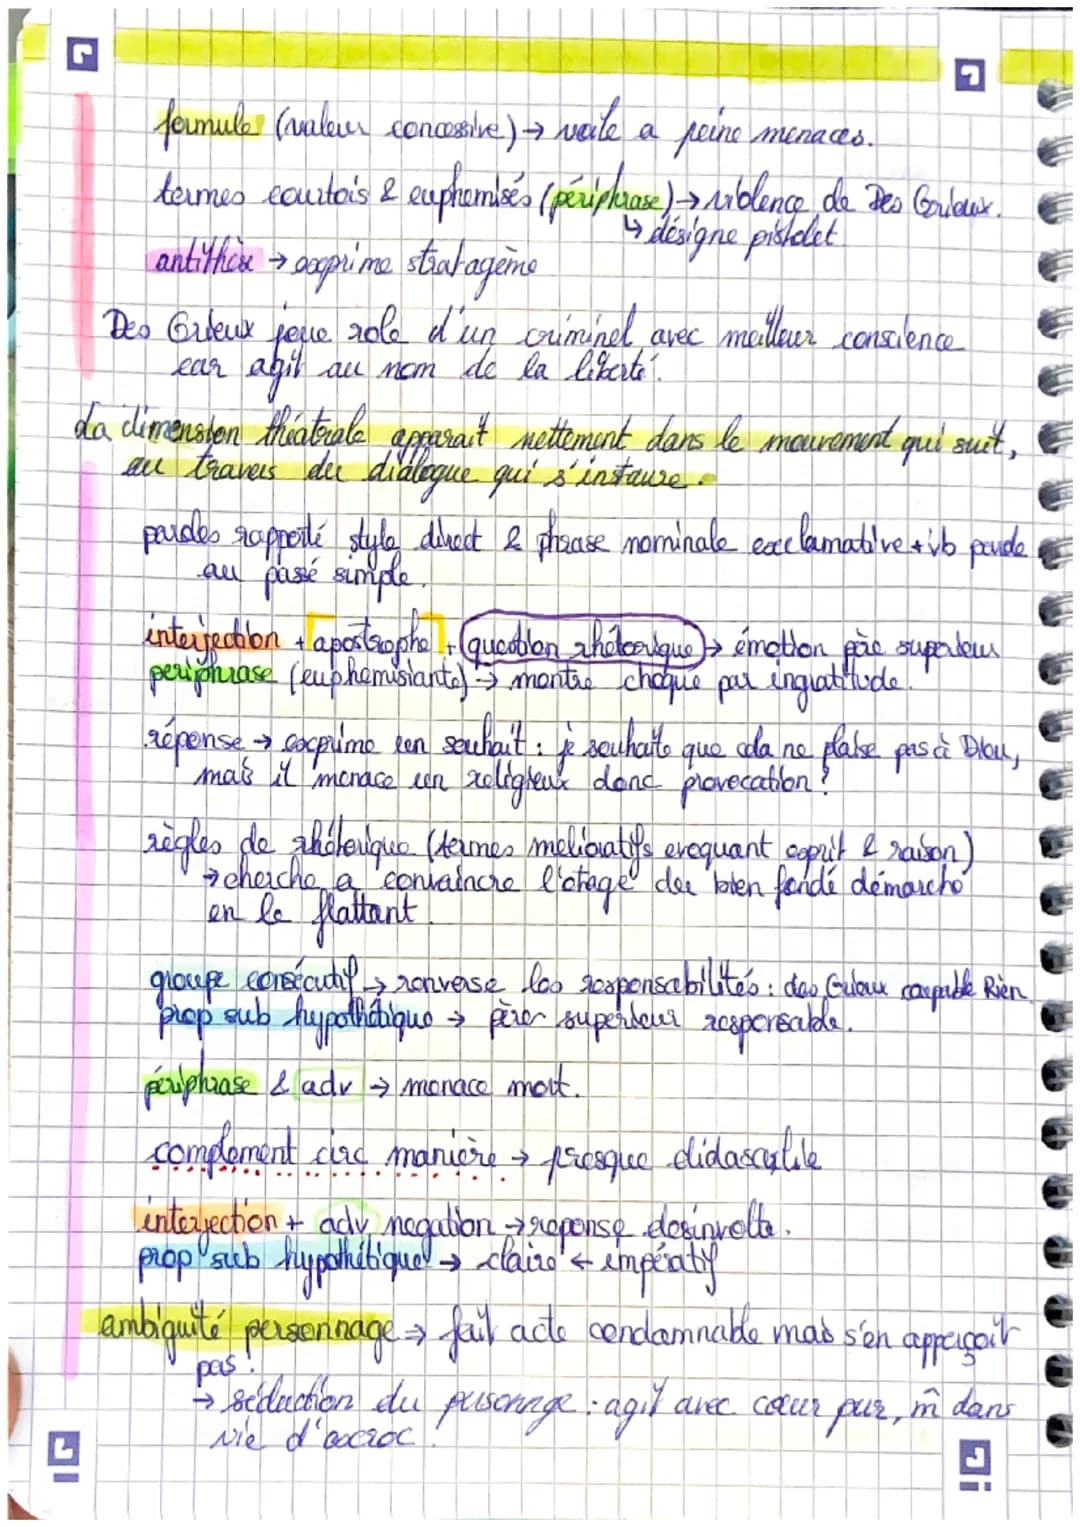 formule (valeur concessive) → voile a peine menaces.
termes courtois & euphemisés (périphrase) → violence de Des Grieux.
↳ désigne pistolet
antithèse → exprime stratagème
Des Grieux joue role d'un criminel avec meilleur conscience
car agit au nom de la liberté.
La dimension théatrale apparait nettement dans le mouvement qui suit,
au travers du dialogue qui s'instaure.
paroles rapporté style direct & phrase nominale exclamative + vb parole
au passé simple.
interjection + apostrophe + question rhétorique → émotion père superieur
periphrase (euphemisiante) → montre choqué par ingratitude.
réponse → exprime un souhait : je souhaite que cela ne plaise pas à Dieu,
mais il menace un religieux donc provocation ?
règles de rhétorique (termes melioratifs evoquant esprit & raison)
→ cherche a convaincre l'otage du bien fondé démarche
en le flattant.
groupe consécutif → renverse les responsabilités : des Grieux coupable Rien
prop sub hypothétique → père superieur responsable.
périphrase & adv → menace mort.
complement circ manière → presque didascalie
interjection + adv negation → reponse desinvolte.
prop sub hypothétique → claire + impératif
ambiguité personnage → fait acte condamnable mais s'en apperçoit
pas !
→ séduction du personnge : agit avec cœur pur, m̂ dans
vie d'escroc !